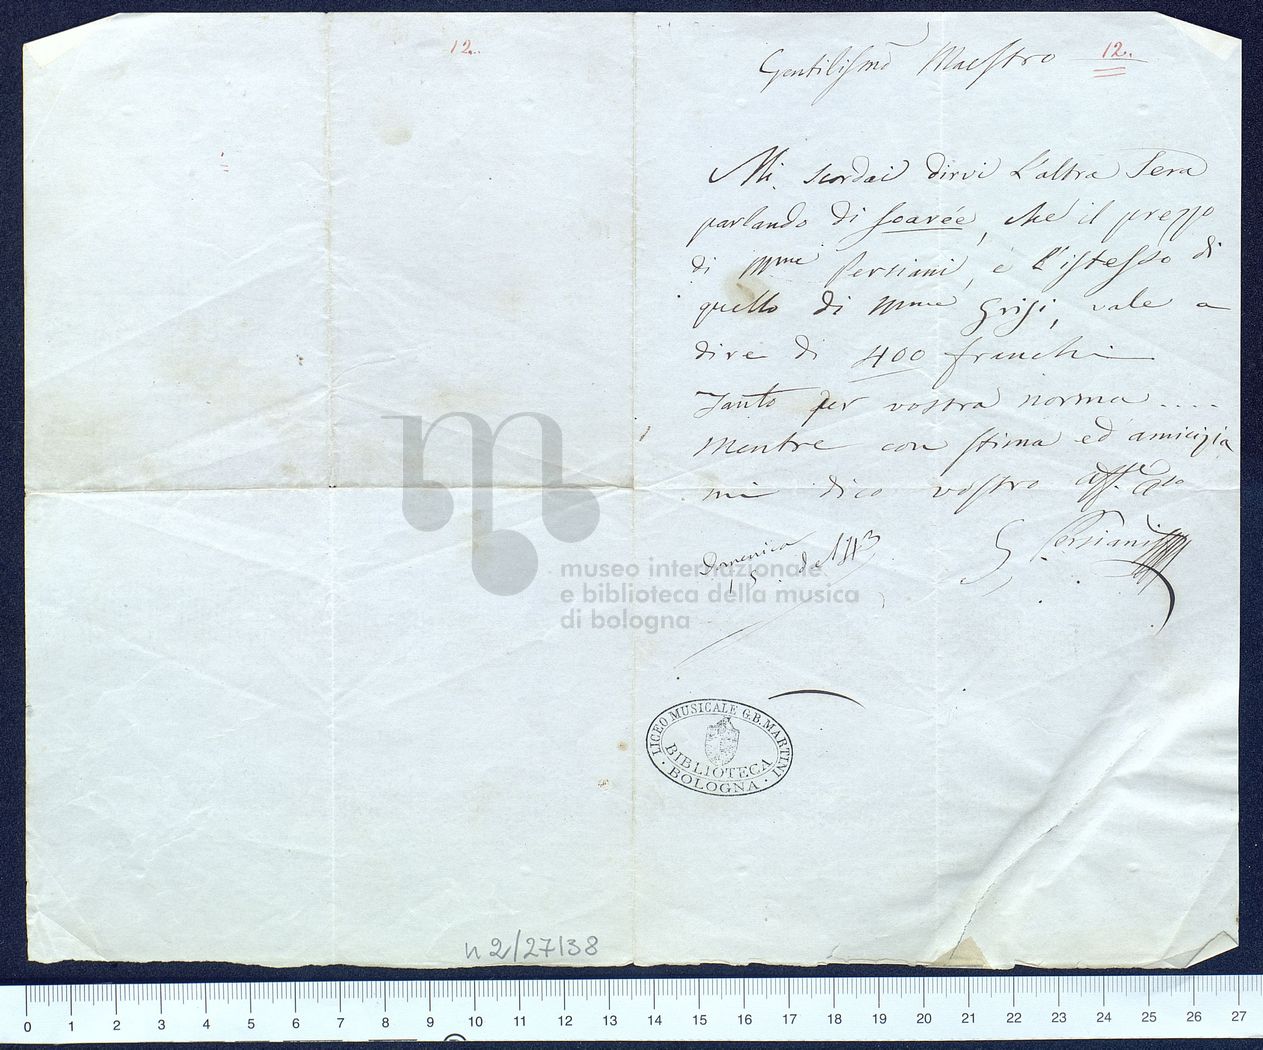 12.
12.
Gentilissmo Maestro
Mi scordai dirvi L'altra Sera
parlando di Soarée, che il prezzo
di Mme Persiani, è L'istesso di
quello di Mme Grisi, vale a
dire di 400 franchi
Tanto per vostra norma ....
Mentre con stima ed amicizia
mi dico vostro
G. Persiani
Domenica
15
museo internazionale
e biblioteca della musica
di bologna
LICEO MUSICALE G.B. MARTINI
BIBLIOTECA
BOLOGNA
n 2/27138
0 1 2 3 4 5 6 7 8 9 10 11 12 13 14 15 16 17 18 19 20 21 22 23 24 25 26 27